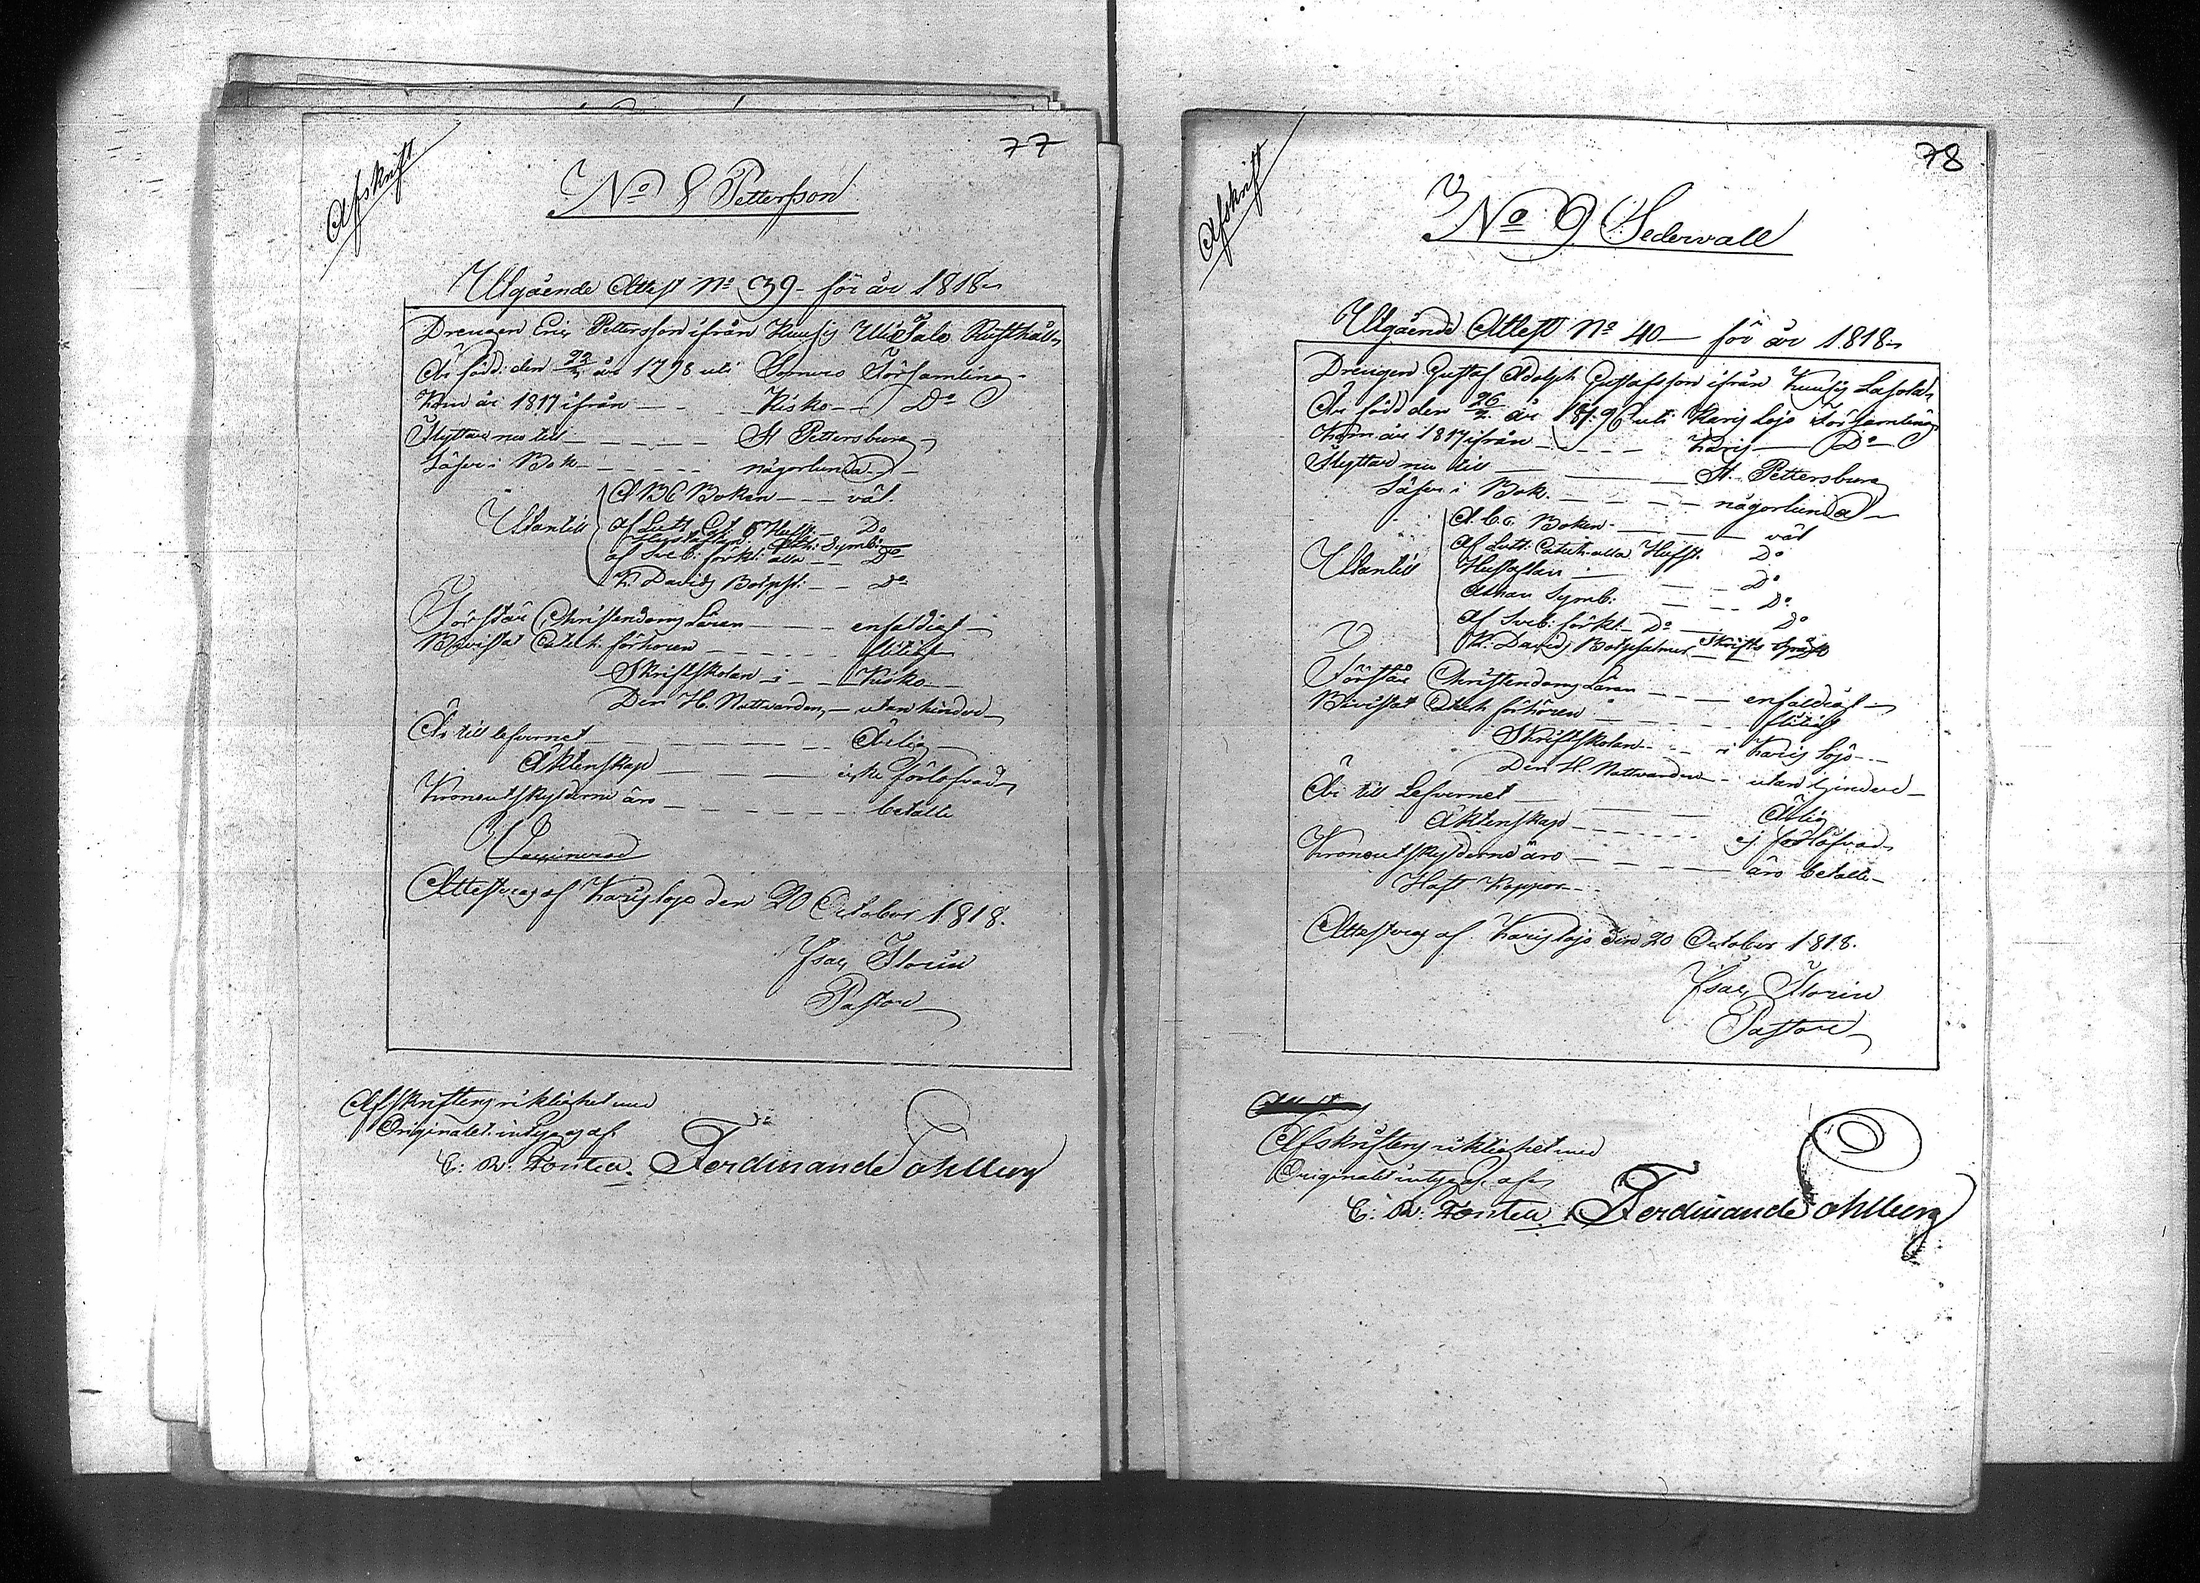 77
Afskrift
No 8 Pettersson
Utgående Attest No 39 för år 1818
Drengen Eric Pettersson ifrån Kuusis Rusthåll
Är född den 22 år 1798 uti Somero Församling
Kom år 1817 ifrån Kisko Do
Flyttar nu till St Pettersburg
Läser i Bok någorlunda
A B C Boken väl
Utantill af Luth. Hustaflan Symb. Do
af Sveb: förkl: alla Do
K. Davids Botpss: Do
Förstår Christendoms Läran enfaldigt
Bivistat Catech. förhören flitigt
Skriftskolan i Kisko
Den H. Nattvarden utan hinder
Är till lefvernet Ärlig
Äktenskap icke förlofvad
Kronoutskylderne äro betalte
Vaccinerad
Attesteras af Karislojo den 20 October 1818.
Isac Florin
Pastor
Afskriftens riktighet med
Originalet intygas af
C: W: Fontell. Ferdinand Sohlberg
78
Afskrift
No 9 Sedervall
Utgående Attest No 40 för år 1818
Drengen Gustaf Adolph Gustafsson ifrån Kuusis
Är född den 26 år 1796 uti Karis Lojo Församling
Kom år 1817 ifrån Karis Do
Flyttar nu till St. Pettersburg
Läser i Bok. någorlunda
A. b. c. Boken väl
Af Luth: Catech. alla Hufst. Do
Utantill Hustaflan Do
Athan Symb: Do
Af Sveb: förkl: Do Do
K. David, Botpsalmer Skrifts
Förstår Christendoms Läran enfaldigt
Bivistat Catech. förhören flitigt
Skriftskolan i Karis Lojo
Den H. Nattvarden utan hinder
Är till Lefvernet Ärlig
Äktenskap ej förlofvad
Kronoutskylderne äro äro betalte
Haft Koppor
Attesteras af Karis Lojo den 20 October 1818.
Isac Florin
Pastor
Afskriftens riktighet med
Originalet intygas af
C: W: Fontell Ferdinand Sohlberg